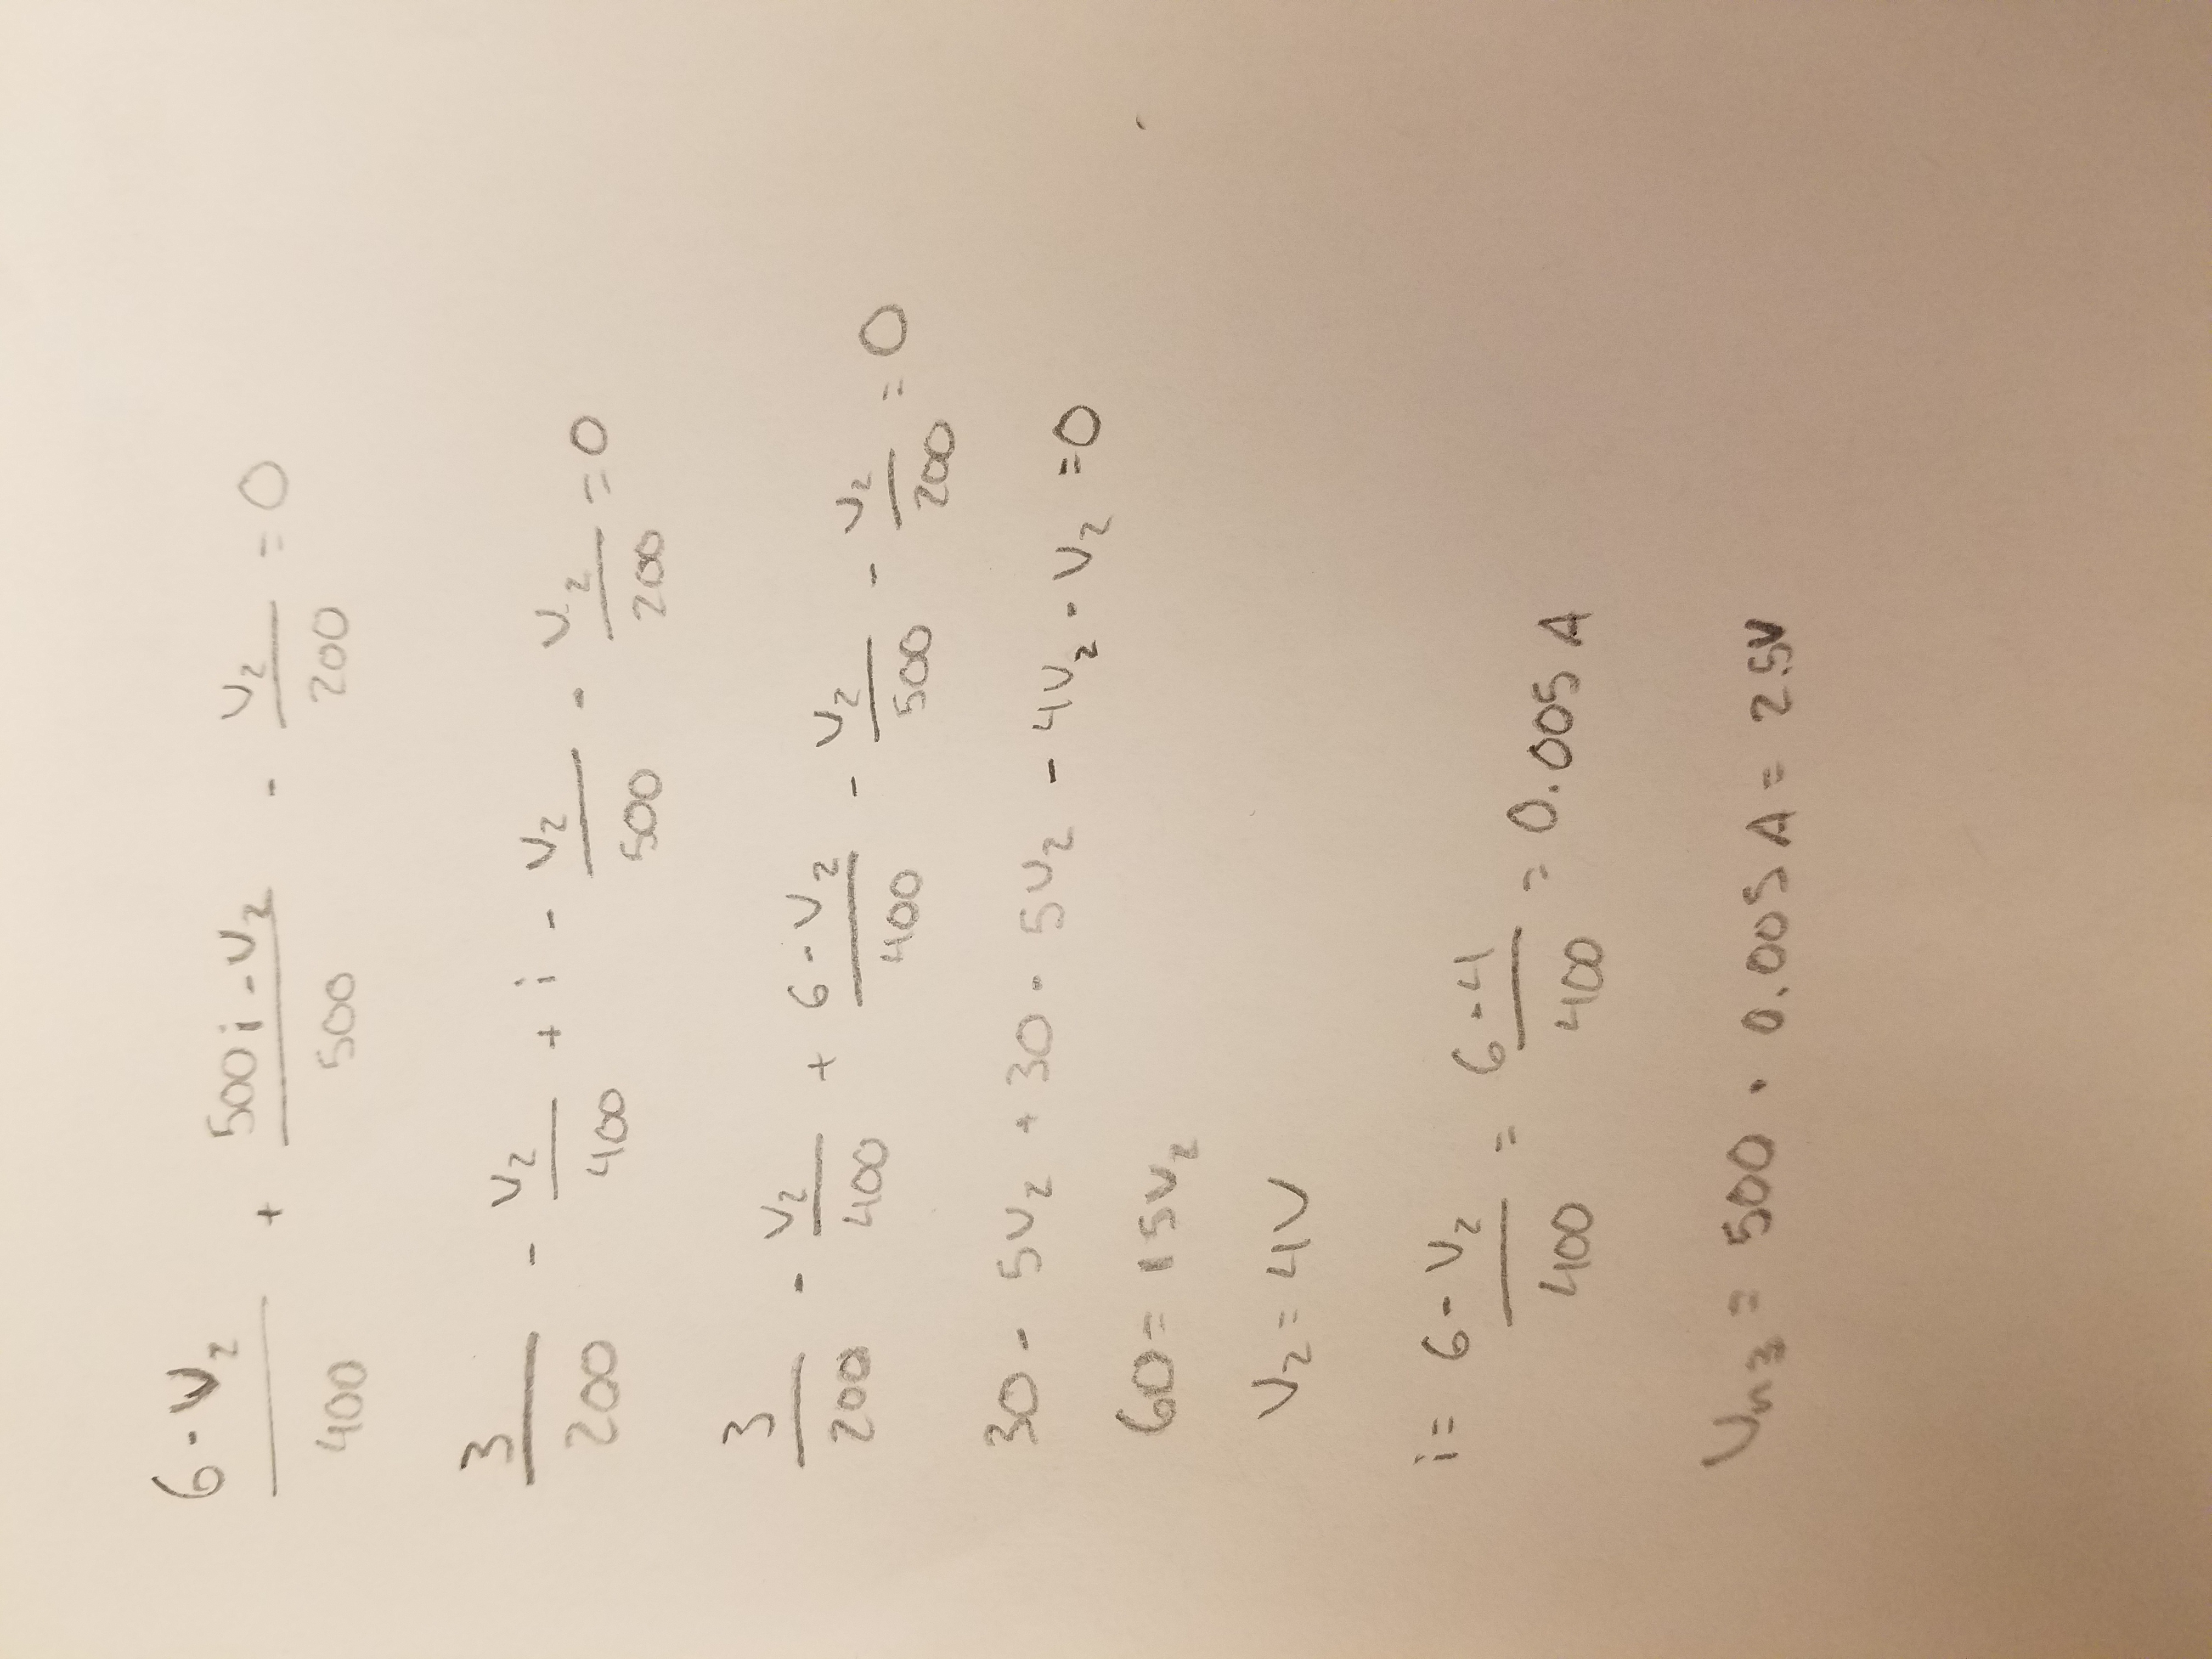 6 - V₂ / 400 + 500i - V₂ / 500 - V₂ / 200 = 0
3 / 200 - V₂ / 400 + i - V₂ / 500 - V₂ / 200 = 0
3 / 200 - V₂ / 400 + 6 - V₂ / 400 - V₂ / 500 - V₂ / 200 = 0
30 - 5V₂ + 30 - 5V₂ - 4V₂ - V₂ = 0
60 = 15V₂
V₂ = 4V
i = 6 - V₂ / 400 = 6 - 4 / 400 = 0.005 A
Vn₃ = 500 · 0.005 A = 2.5V